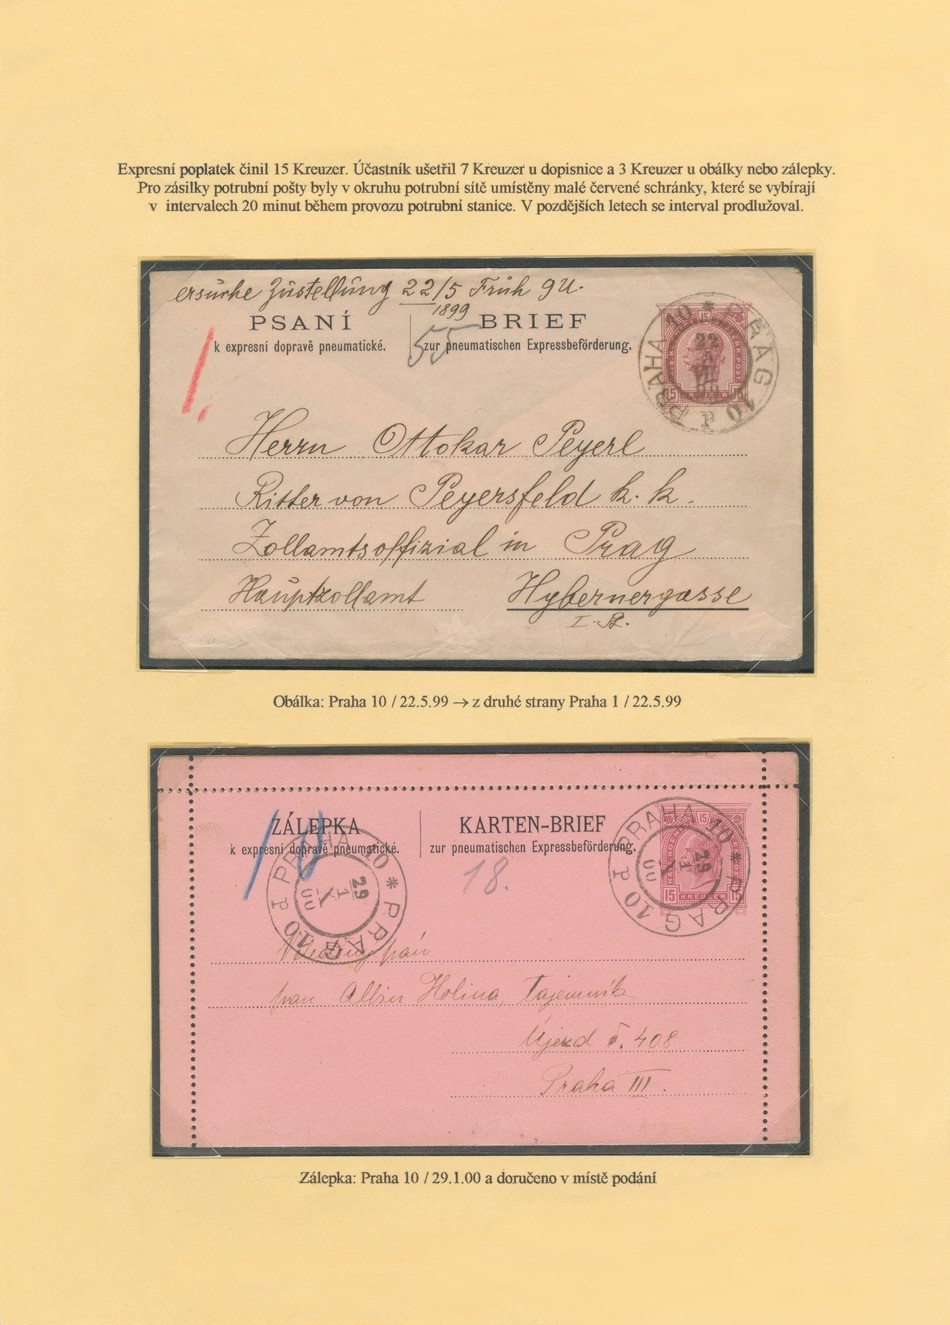 Expresní poplatek činil 15 Kreuzer. Účastník ušetřil 7 Kreuzer u dopisnice a 3 Kreuzer u obálky nebo zálepky.
Pro zásilky potrubní pošty byly v okruhu potrubní sítě umístěny malé červené schránky, které se vybírají
v intervalech 20 minut během provozu potrubní stanice. V pozdějších letech se interval prodlužoval.
ersuche Zustellung 22/5 Früh 9 U.
1899
PSANÍ
k expresní dopravě pneumatické.
BRIEF
zur pneumatischen Expressbeförderung.
55
15
PRAHA 10 * PRAG 10
22
P
Herrn Ottokar Peyerl
Ritter von Peyersfeld k. k.
Zollamtsoffizial in Prag
Hauptzollamt Hybernergasse
Obálka: Praha 10 / 22.5.99 → z druhé strany Praha 1 / 22.5.99
ZÁLEPKA
k expresní dopravě pneumatické.
KARTEN-BRIEF
zur pneumatischen Expressbeförderung.
10
18.
PRAHA 10 * PRAG 10 P
29
1
X
00
15
15 KREUZER 15
PRAHA 10 PRAG 10 P
29
1
X
00
pán
pan Albin Holina Tajemník
Újezd č. 408
Praha III.
Zálepka: Praha 10 / 29.1.00 a doručeno v místě podání